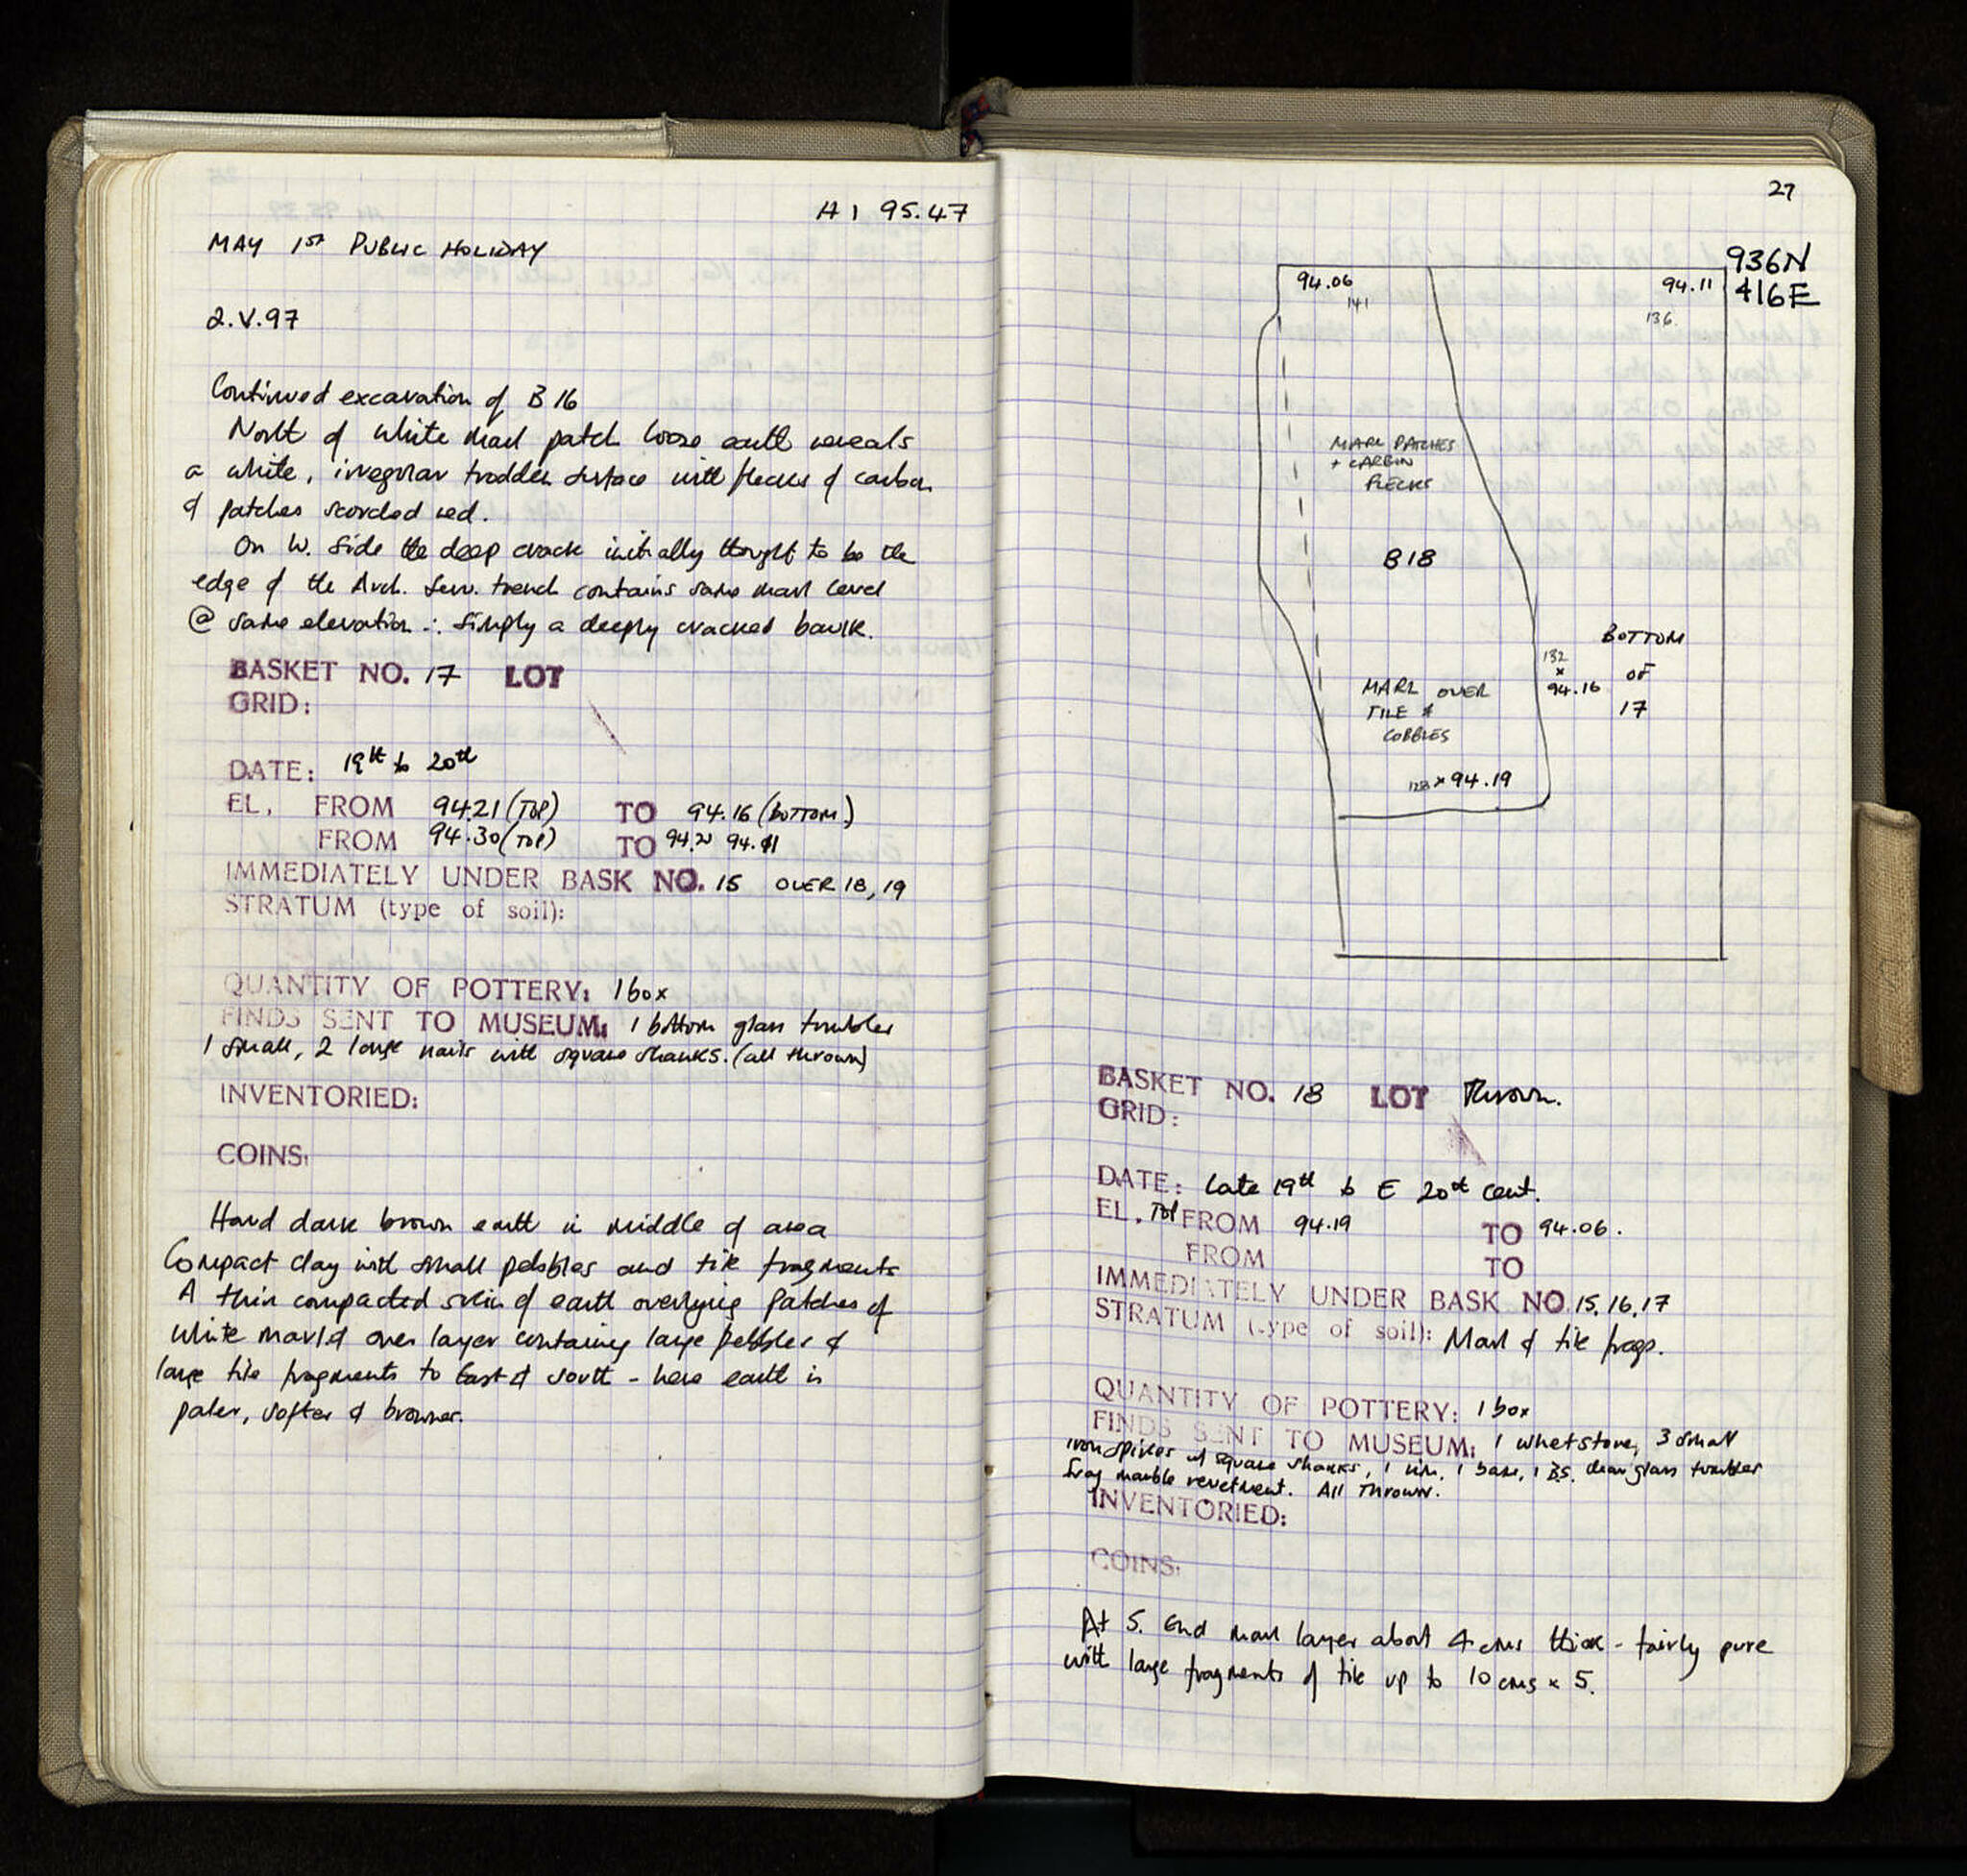 HI 95.47
MAY 1st PUBLIC HOLIDAY
2.V.97
Continued excavation of B 16
North of white marl patch loose earth reveals
a white, irregular trodden surface with flecks of carbon
& patches scorched red.
On W. side the deep crack initially thought to be the
edge of the Arch. Serv. trench contains same marl level
@ same elevation ∴ simply a deeply cracked baulk.
BASKET NO. 17 LOT
GRID:
DATE: 19th to 20th
EL. FROM 94.21 (TOP) TO 94.16 (BOTTOM)
FROM 94.30 (TOP) TO 94.21 94.11
IMMEDIATELY UNDER BASK NO. 15 OVER 18, 19
STRATUM (type of soil):
QUANTITY OF POTTERY: 1 box
FINDS SENT TO MUSEUM: 1 bottom glass tumbler
1 small, 2 large nails with square shanks. (all thrown)
INVENTORIED:
COINS:
Hard dark brown earth in middle of area
Compact clay with small pebbles and tile fragments
A thin compacted skin of earth overlying patches of
white marl & over layer containing large pebbles &
large tile fragments to East & South - here earth is
paler, softer & browner.
27
936N
416E
94.06
141
94.11
136
MARL PATCHES
+ CARBON
FLECKS
B18
BOTTOM
OF
17
132
×
94.16
MARL OVER
TILE &
COBBLES
128 × 94.19
BASKET NO. 18 LOT Thrown.
GRID:
DATE: Late 19th to E 20th cent.
EL. TOP FROM 94.19 TO 94.06.
FROM TO
IMMEDIATELY UNDER BASK NO. 15, 16, 17
STRATUM (type of soil): Marl & tile frags.
QUANTITY OF POTTERY: 1 box
FINDS SENT TO MUSEUM: 1 whetstone, 3 small
iron spikes w square shanks, 1 rim, 1 base, 1 B.S. clear glass tumbler
frag marble revetment. All Thrown.
INVENTORIED:
COINS:
At S. End marl layer about 4 cms thick - fairly pure
with large fragments of tile up to 10 cms × 5.